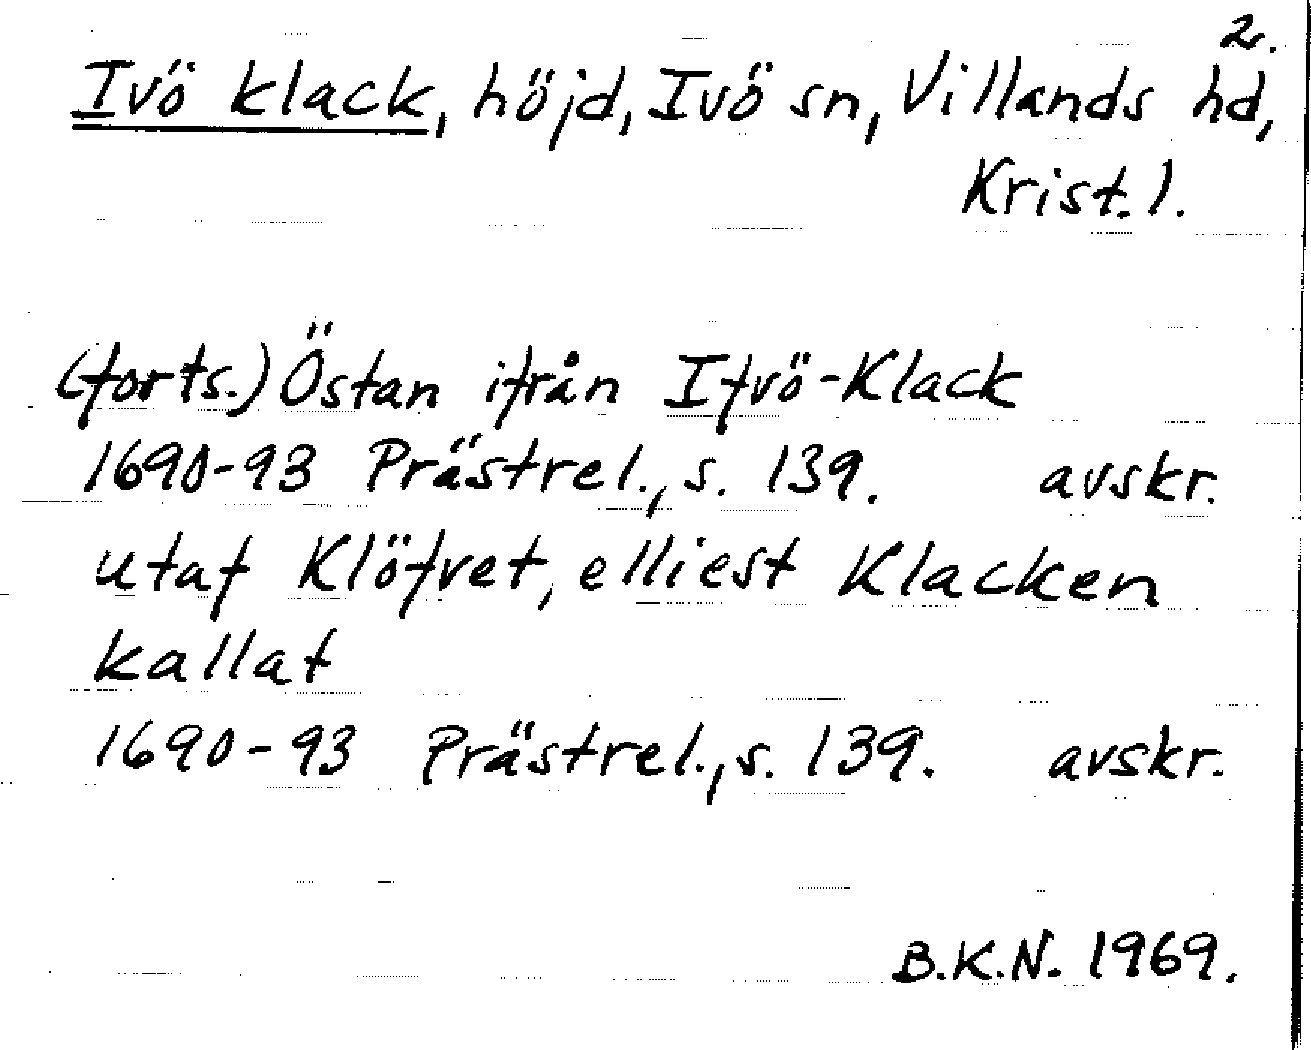 2.
Ivö klack, höjd, Ivö sn, Villands hd,
Krist. l.
(forts.) Östan ifrån Ifvö-Klack
1690-93 Prästrel., s. 139. avskr.
utaf Klöfvet, elliest Klacken
kallat
1690-93 Prästrel., s. 139. avskr.
B.K.N. 1969.